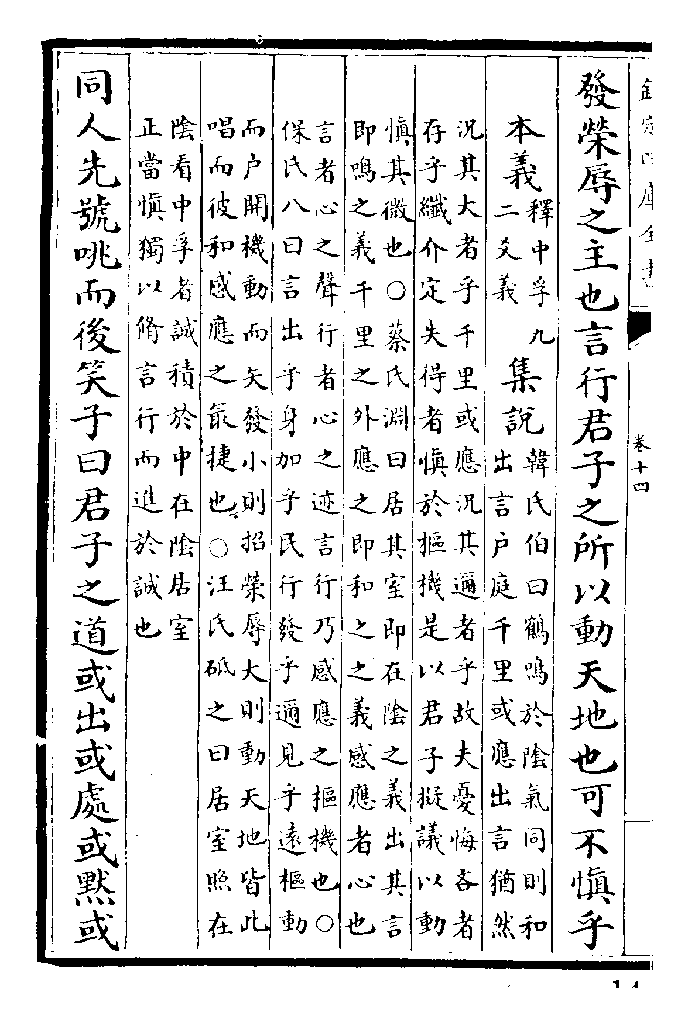 欽定四庫全書
卷十四
發榮辱之主也言行君子之所以動天地也可不慎乎
本義釋中孚九
二爻義
集說韓氏伯曰鶴鳴於陰氣同則和
出言戶庭千里或應出言猶然
況其大者乎千里或應況其邇者乎故夫憂悔吝者
存乎纖介定失得者慎於樞機是以君子擬議以動
慎其微也○蔡氏淵曰居其室即在陰之義出其言
即鳴之義千里之外應之即和之之義感應者心也
言者心之聲行者心之迹言行乃感應之樞機也○
保氏八曰言出乎身加乎民行發乎邇見乎遠樞動
而户開機動而矢發小則招榮辱大則動天地皆此
唱而彼和感應之最捷也○汪氏砥之曰居室照在
陰看中孚者誠積於中在陰居室
正當慎獨以脩言行而進於誠也
同人先號咷而後笑子曰君子之道或出或處或默或